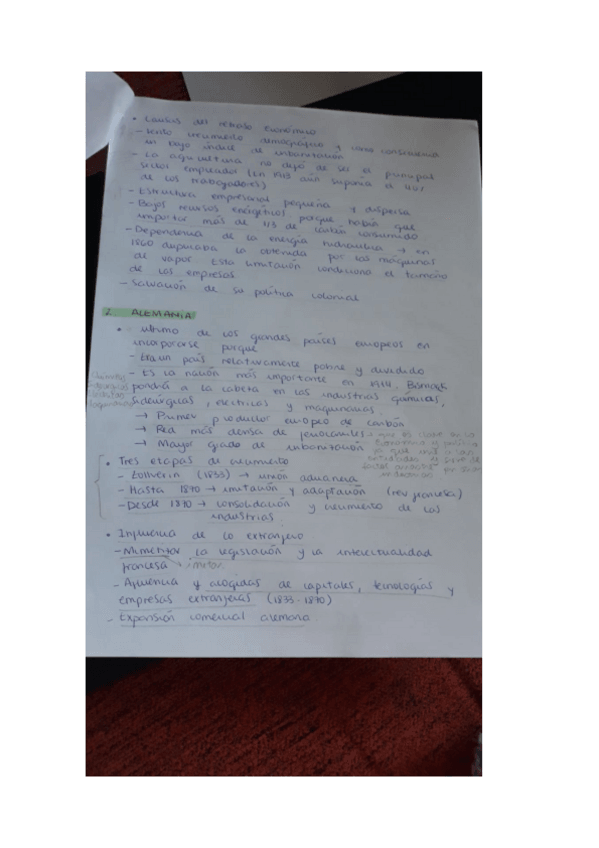 • Causas del retraso económico
- Lento crecimiento demográfico y como consecuencia
un bajo índice de urbanización
- La agricultura no dejó de ser el principal
sector empleador (en 1913 aún suponía el 40%
de los trabajadores)
- Estructura empresarial pequeña y dispersa
- Bajos recursos energéticos, porque había que
importar más de 1/3 de carbón consumido
- Dependencia de la energía hidráulica → en
1860 duplicaba la obtenida por las máquinas
de vapor. Esta limitación condicionó el tamaño
de las empresas
- Salvación de su política colonial
2. ALEMANIA
• Último de los grandes países europeos en
incorporarse porque
- Era un país relativamente pobre y dividido
- Es la nación más importante en 1914. Bismark
pondrá a la cabeza en las industrias químicas,
siderúrgicas, eléctricas y maquinarias.
→ Primer productor europeo de carbón
→ Red más densa de ferrocarriles
→ Mayor grado de urbanización
• Tres etapas de crecimiento
- Zollverein (1833) → unión aduanera
- Hasta 1870 → imitación y adaptación (rev francesa)
- Desde 1870 → consolidación y crecimiento de las
industrias.
• Influencia de lo extranjero
- Mimetizar la legislación y la intelectualidad
francesa imitar
- Afluencia y acogidas de capitales, tecnologías y
empresas extranjeras (1833-1870)
- Expansión comercial alemana